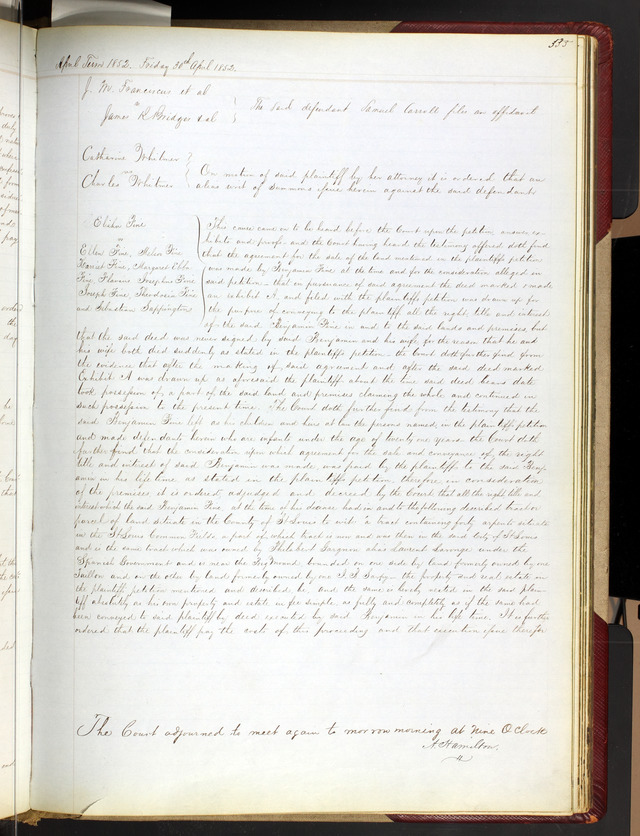 535
April Term 1852. Friday 30th April 1852.
J. W. Franciscus et al
vs
James R. Bridges et al
The said defendant Samuel Carroll files an affidavit
Catharine Whitmer
vs
Charles Whitmer
On motion of said plaintiff by her attorney it is ordered that an
alias writ of summons issue herein against the said defendant
Elisha Fine
vs
Ellen Fine, Helen Fine
Harriet Fine, Margaret
Fine, Flavius Josephus Fine
Joseph Fine, Theodosia Fine
and Sebastian Sappington
This cause came on to be heard before the Court upon the petition, answer ex-
hibits and proofs and the Court having heard the testimony offered doth find
that the agreement for the sale of the land mentioned in the plaintiffs petition
was made by Benjamin Fine at the time and for the consideration alleged in
said petition - that in pursuance of said agreement the deed marked
an exhibit A, and filed with the plaintiffs petition was drawn up for
the purpose of conveying to the plaintiff all the right, title and interest
of the said Benjamin Fine in and to the said lands and premises, but
that the said deed was never signed by said Benjamin and his wife for the reason that he and
his wife both died suddenly as stated in the plaintiffs petition - the Court doth further find from
the evidence that after the making of said agreement and after the said deed marked
Exhibit A was drawn up as aforesaid the plaintiff about the time said deed bears date
took possession of a part of the said land and premises claiming the whole and continued in
such possession to the present time. The Court doth further find from the testimony that the
said Benjamin Fine left as his children and heirs at law the persons named in the plaintiffs petition
and made defendants herein who are infants under the age of twenty one years. the Court doth
further find that the consideration upon which agreement for the sale and conveyance of the right
title and interest of said Benjamin was made, was paid by the plaintiff to the said Benj-
amin in his life time as stated in the plaintiffs petition, therefore in consideration
of the premises it is ordered, adjudged and decreed by the Court that all the right title and
interest which the said Benjamin Fine, at the time of his decease had in and to the following described tract or
parcel of land situate in the County of St Louis to wit a tract containing forty arpents situate
in the St Louis Common Fields a part of which tract is now and was then in the said City of St Louis
and is the same tract which was owned by Philibert Gagnon alias Laurent under the
Spanish Government and is near the bounded on one side by land formerly owned by one
Taillon and on the other by land formerly owned by one the property and real estate in
the plaintiffs petition mentioned and described be, and the same is hereby vested in the said plain-
tiff absolutely as his own property and estate in fee simple, as fully and completely as if the same had
been conveyed to said plaintiff by deed executed by said Benjamin in his life time. It is further
ordered that the plaintiff pay the costs of this proceeding and that execution issue therefor
The Court adjourned to meet again to morrow morning at nine O'Clock
A. Hamilton.